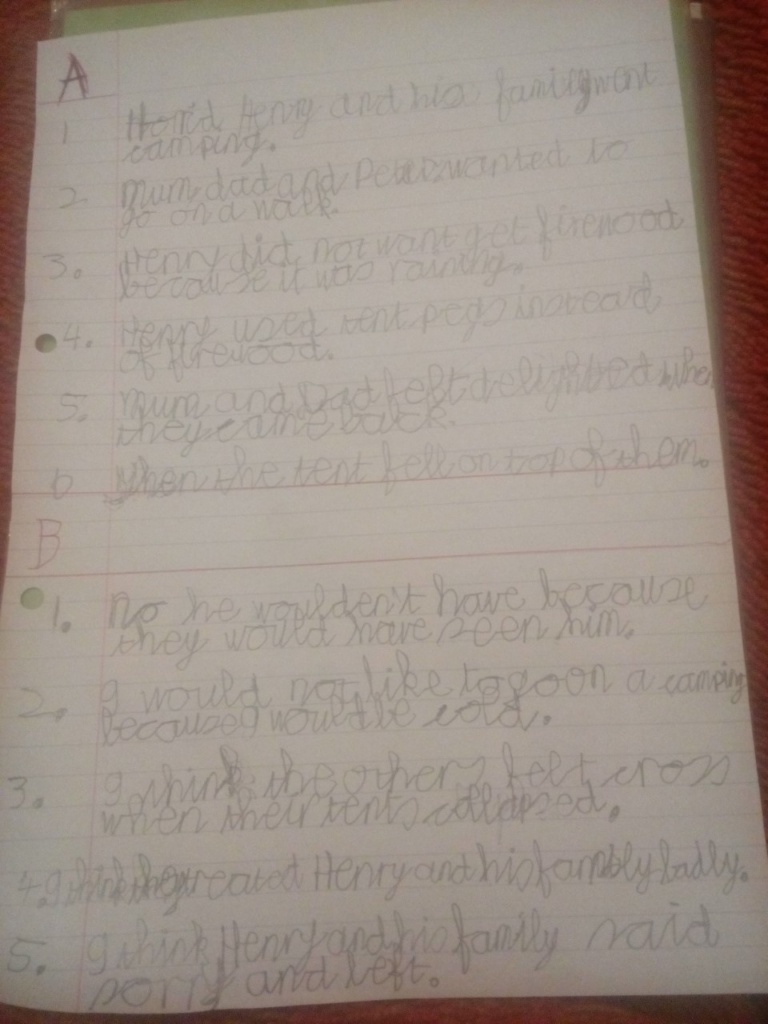 A
1 Horrid Henry and his family went
camping.
2 mum dad and Peter wanted to
go on a walk.
3. Henry did not want get firewood
because it was raining.
4. Henry used tent pegs instead
of firewood.
5. mum and Dad felt delighted when
they came back.
6 when the tent fell on top of them.
B
1. no he wouldn't have because
they would have seen him.
2. I would not like to go on a camping
because I would be cold.
3. I think the others felt cross
when their tents collapsed.
4. I think they treated Henry and his fambly badly.
5. I think Henry and his family said
sorry and left.